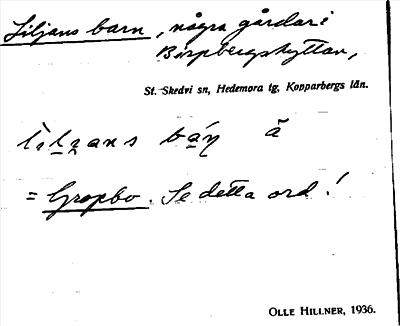 Liljans barn, några gårdar i
Bispbergshyttan,
St. Skedvi sn, Hedemora tg, Kopparbergs län.
= Gropbo. Se detta ord!
OLLE HILLNER, 1936.